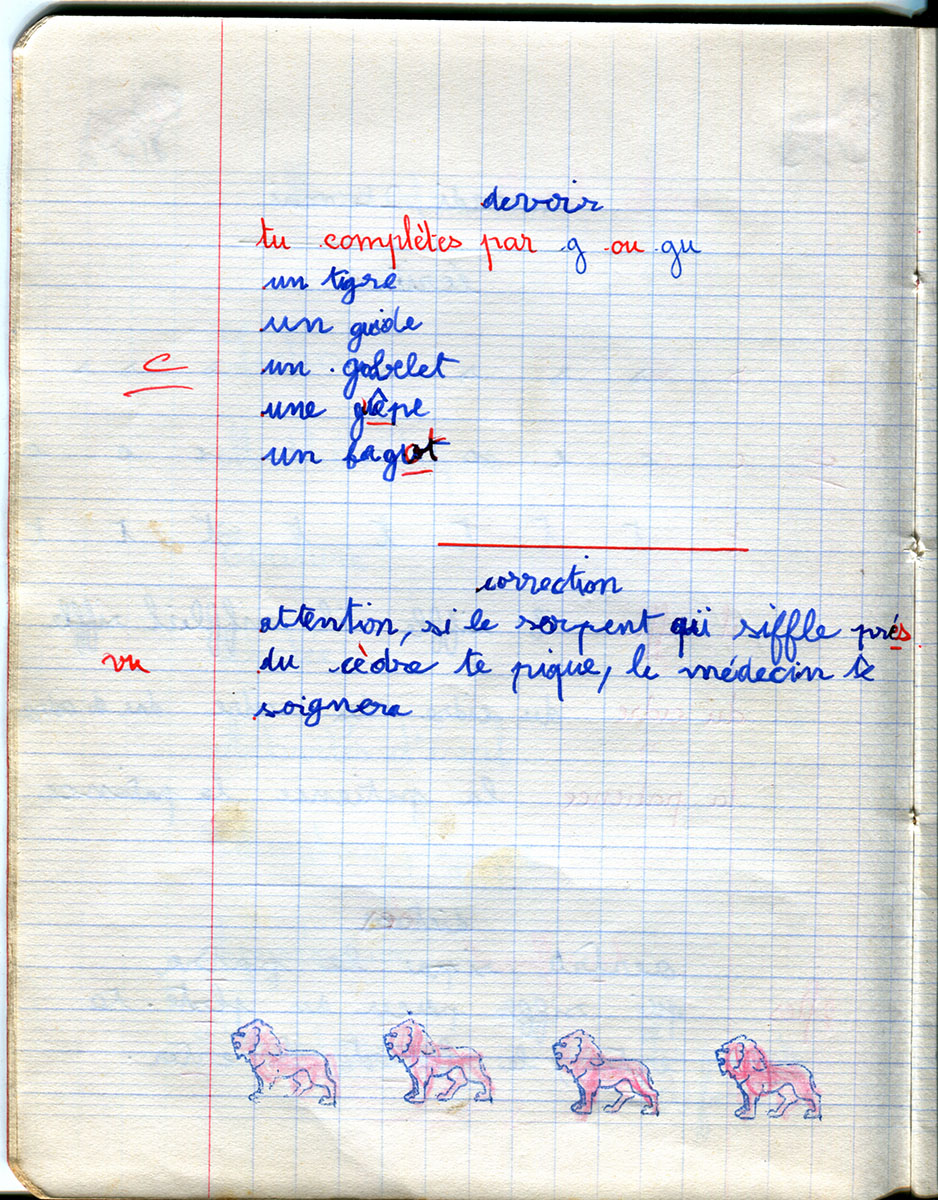 devoir
tu complètes par g ou gu
un tigre
un guide
C
un gobelet
une guêpe
un fagot
correction
attention, si le serpent qui siffle prés
vu
du cèdre te pique, le médecin te
soignera